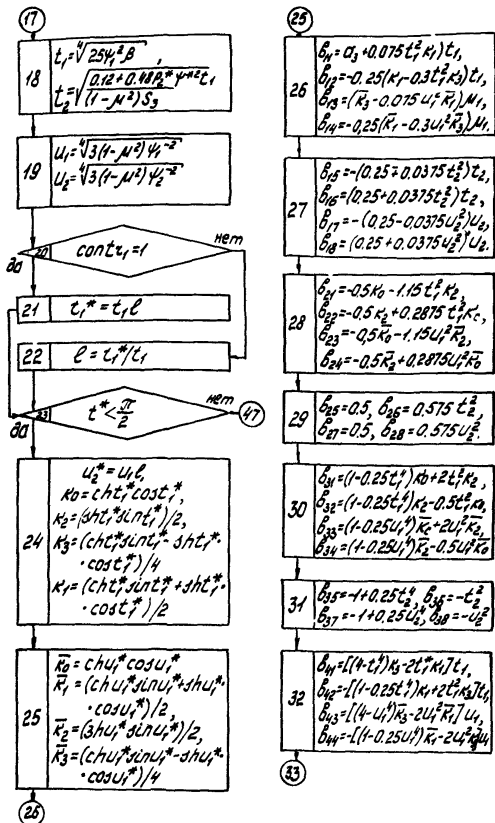 17
18
t₁=∜25ψ₁²β,
t₂=√(0.12+0.48β₂*)ψ*²t₁/(1-μ²)S₃
19
u₁=∜3(1-μ²)ψ₁⁻²
u₂=∜3(1-μ²)ψ₂⁻²
20
contr₁=1
нет
да
21
t₁*=t₁l
22
l=t₁*/t₁
23
t*<π/2
нет
47
да
24
u₂*=u₁l,
κ₀=cht₁*cost₁*,
κ₂=(sht₁*sint₁*)/2,
κ₃=(cht₁*sint₁*-sht₁*·
·cost₁*)/4
κ₁=(cht₁*sint₁*+sht₁*·
·cost₁*)/2
25
κ̄₀=chu₁*cosu₁*
κ̄₁=(chu₁*sinu₁*+shu₁*·
·cosu₁*)/2,
κ̄₂=(shu₁*sinu₁*)/2,
κ̄₃=(chu₁*sinu₁*-shu₁*·
·cosu₁*)/4
26
25
26
в₁₁=α₃+0.075t₁²κ₁)t₁,
в₁₂=-0.25(κ₁-0.3t₁²κ₃)t₁,
в₁₃=(κ̄₃-0.075u₁²κ̄₁)μ₁,
в₁₄=-0,25(κ̄₁-0.3u₁²κ̄₃)μ₁.
27
в₁₅=-(0.25+0.0375t₂²)t₂,
в₁₆=(0.25+0.0375t₂²)t₂,
в₁₇=-(0.25-0.0375u₂²)u₂,
в₁₈=(0.25+0.0375u₂²)u₂.
28
в₂₁=-0.5κ₀-1.15t₁²κ₂,
в₂₂=-0.5κ₂+0.2875t₁²κ₀,
в₂₃=-0,5κ̄₀-1.15u₁²κ̄₂,
в₂₄=-0.5κ̄₂+0.2875u₁²κ̄₀
29
в₂₅=0.5, в₂₆=0.575t₂²,
в₂₇=0.5, в₂₈=0.575u₂².
30
в₃₁=(1-0.25t₁⁴)κ₀+2t₁²κ₂,
в₃₂=(1-0.25t₁⁴)κ₂-0.5t₁²κ₀,
в₃₃=(1-0.25u₁⁴)κ̄₀+2u₁²κ̄₂,
в₃₄=(1-0.25u₁⁴)κ̄₂-0.5u₁²κ̄₀
31
в₃₅=-1+0.25t₂⁴, в₃₆=-t₂²
в₃₇=-1+0.25u₂⁴, в₃₈=-u₂²
32
в₄₁=[(4-t₁⁴)κ₃-2t₁*κ₁]t₁,
в₄₂=-[(1-0.25t₁⁴)κ₁+2t₁²κ₃]t₁,
в₄₃=[(4-u₁⁴)κ̄₃-2u₁²κ̄₁]u₁,
в₄₄=-[(1-0.25u₁⁴)κ̄₁-2u₁²κ̄₃]u₁
33